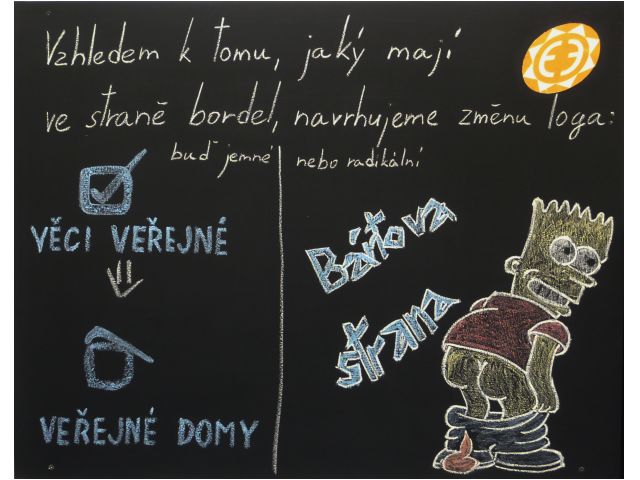 Vzhledem k tomu, jaký mají
ve straně bordel, navrhujeme změnu loga:
buď jemné
nebo radikální
VĚCI VEŘEJNÉ
VEŘEJNÉ DOMY
Bártova
strana